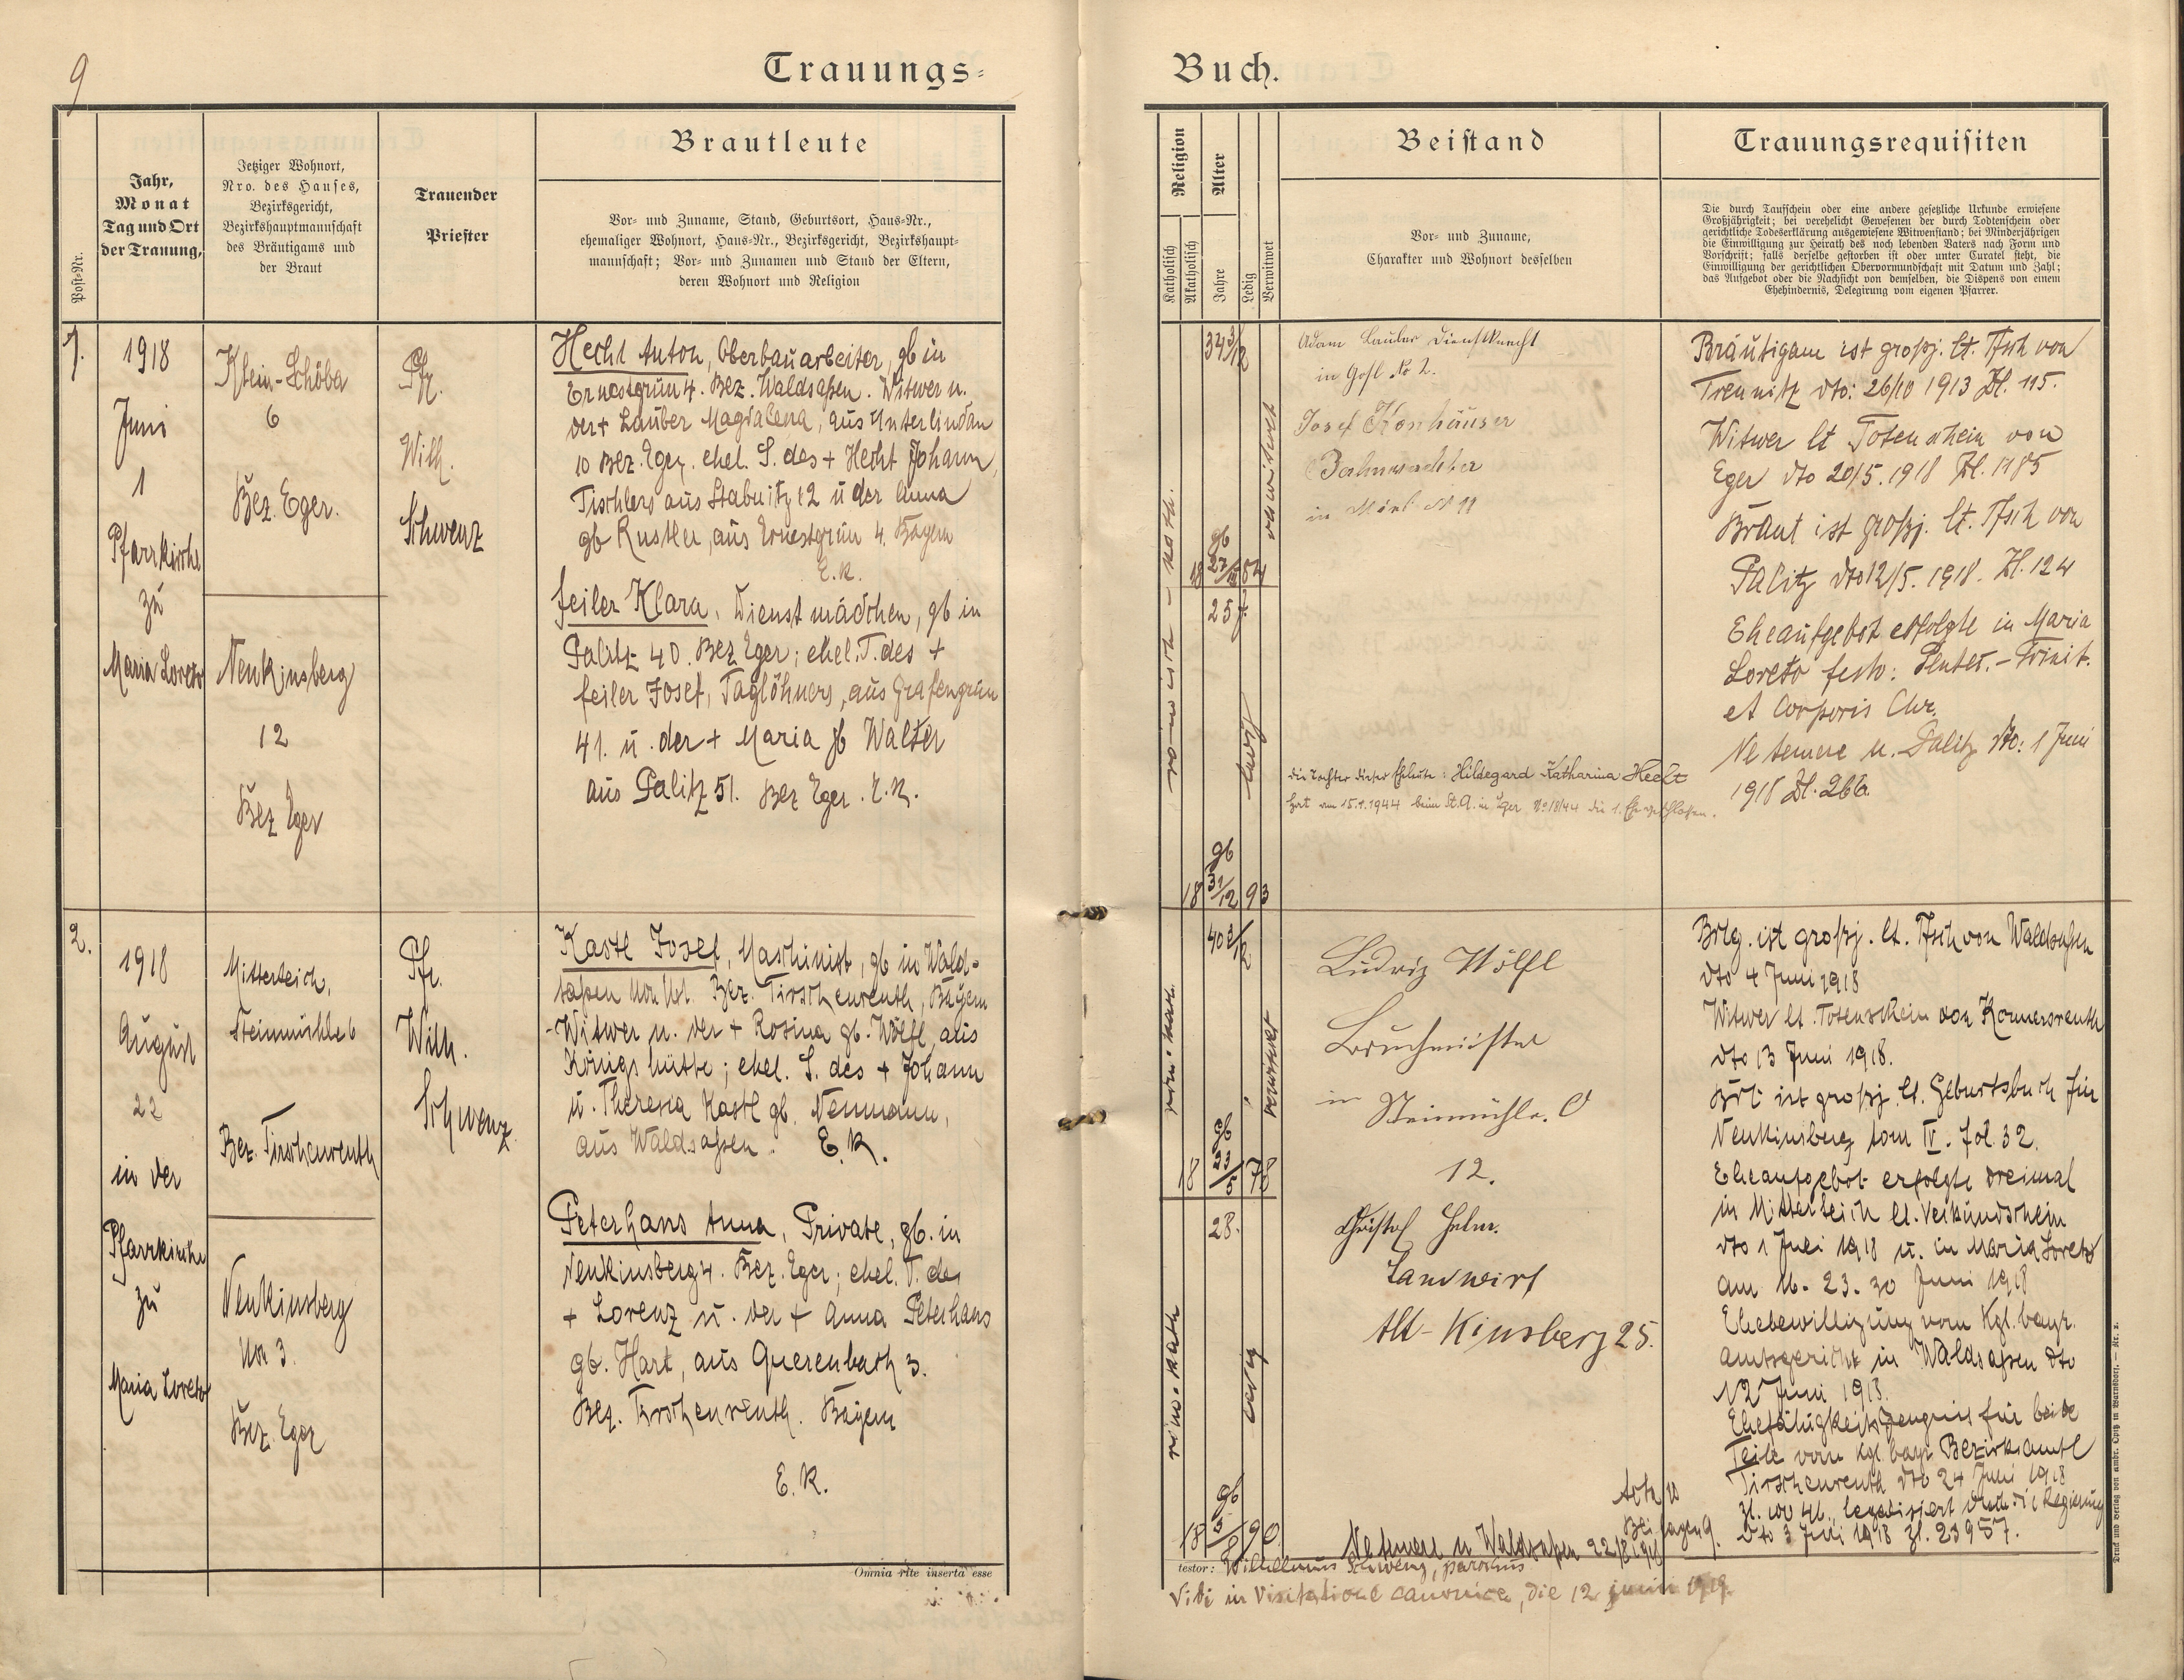 9
Trauungs-
Jahr,
Monat
Tag und Ort
der Trauung,
Jetziger Wohnort,
Nro. des Hauses,
Bezirksgericht,
Bezirkshauptmannschaft
des Bräutigams und
der Braut
Trauender
Priester
Brautleute
Vor- und Zuname, Stand, Geburtsort, Haus-Nr.,
ehemaliger Wohnort, Haus-Nr., Bezirksgericht, Bezirkshaupt-
mannschaft; Vor- und Zunamen und Stand der Eltern,
deren Wohnort und Religion
Post-Nr.
1.
1918
Juni
1
Pfarrkirche
zu
Maria Loreto
Klein-Schöba
6
Bez. Eger.
Neukinsberg
12
Bez Eger
Pfr.
Wilh.
Schwenz
Hecht Anton, Oberbauarbeiter, gb in
Ernestgrün 4. Bez. Waldsaßen. Witwer n.
der + Lauber Magdalena, aus Unterlindau
10 Bez. Eger. ehel. S. des + Hecht Johann,
Tischlers aus Stabnitz 12 u der Anna
gb Rustler, aus Ernestgrün 4. Bayern
E.K.
Feiler Klara, Dienstmädchen, gb in
Palitz 40. Bez Eger; ehel. T. des +
Feiler Josef, Taglöhners, aus Grafengrün
41. u. der + Maria gb Walter
aus Palitz 51. Bez Eger. E.K.
2.
1918
August
22
in der
Pfarrkirche
zu
Maria Loreto
Mitterteich,
Steinmühle 6
Bez. Tirschenreuth
Neukinsberg
Nro 3.
Bez. Eger
Pfr.
Wilh.
Schwenz
Kastl Josef, Maschinist, gb in Wald-
saßen Bez. Tirschenreuth, Bayern
-Witwer n. der + Rosina gb. Wölfl, aus
Königshütte; ehel. S. des + Johann
u. Theresia Kastl gb. Neumann,
aus Waldsaßen. E.K.
Peterhans Anna, Private, gb. in
Neukinsberg 4. Bez. Eger; ehel. T. des
+ Lorenz u. der + Anna Peterhans
gb. Hart, aus Querenbach 3.
Bez. Tirschenreuth. Bayern
E.K.
Omnia rite inserta esse
Buch.
Religion
Alter
Katholisch
Akatholisch
Jahre
Ledig
Verwitwet
Beistand
Vor- und Zuname,
Charakter und Wohnort desselben
Trauungsrequisiten
Die durch Taufschein oder eine andere gesetzliche Urkunde erwiesene
Großjährigkeit; bei verehelicht Gewesenen der durch Todtenschein oder
gerichtliche Todeserklärung ausgewiesene Witwenstand; bei Minderjährigen
die Einwilligung zur Heirath des noch lebenden Vaters nach Form und
Vorschrift; falls derselbe gestorben ist oder unter Curatel steht, die
Einwilligung der gerichtlichen Obervormundschaft mit Datum und Zahl;
das Aufgebot oder die Nachsicht von demselben, die Dispens von einem
Ehehindernis, Delegirung vom eigenen Pfarrer.
römisch - kath.
34 3/12
verwitwet
gb
18 84
25
ledig
gb
18 31/12 93
Adam Lauber Dienstknecht
in Gosl No 2.
Josef Konhäuser
Bahnwächter
die Tochter dieser Eheleute: Hildegard Katharina Hecht
hat am 15.1.1944 beim St.A. in Eger No 18/44 die 1. Ehe geschlossen.
Bräutigam ist großj. lt. Tfsch von
Treunitz dto: 26/10 1913 Zl. 115.
Witwer lt Totenschein von
Eger dto 20/5. 1918 Zl. 1185
Braut ist großj. lt. Tfsch von
Palitz dto 12/5. 1918. Zl. 124
Eheaufgebot erfolgte in Maria
Loreto festo: Pentec. - Trinit.
et Corporis Chr.
Ne temere n. Palitz dto: 1 Juni
1918 Zl. 266
röm. kath.
40 3/12
verwitwet
gb
18 23/5 78
28.
röm. kath
ledig
gb
18 90
Ludwig Wölfl
Bruchmeister
in Steinmühle.
12.
Christof Helm.
Landwirt
Alt-Kinsberg 25.
Brtg. ist großj. lt. Tfsch von Waldsaßen
dto 4 Juni 1918
Witwer lt. Totenschein von Konnersreuth
dto 13 Juni 1918.
Brt ist großj. lt. Geburtsbuch für
Neukinsberg tom IV. fol. 32.
Eheaufgebot erfolgte dreimal
in Mitterteich lt. Verkündschein
dto 1 Juli 1918 u. in Maria Loreto
am 16. 23. 30 Juni 1918
Ehebewilligung vom Kgl. bayr.
Amtsgericht in Waldsaßen dto
12 Juni 1918.
Ehefähigkeitszeugnis für beide
Teile vom Kgl. bayr. Bezirksamt
Tirschenreuth dto 24 Juni 1918
legalisiert durch die Regierung
dto 3 Juli 1918 Zl. 23957.
Beilagen 9.
Ne temere n Waldsaßen 22/8 1918
testor: Wilhelmus Schwenz, parochus
Vidi in visitatione canonica, die 12 junii 1919.
Druck und Verlag von Ambr. Opitz in Warnsdorf. — Nr. 2.